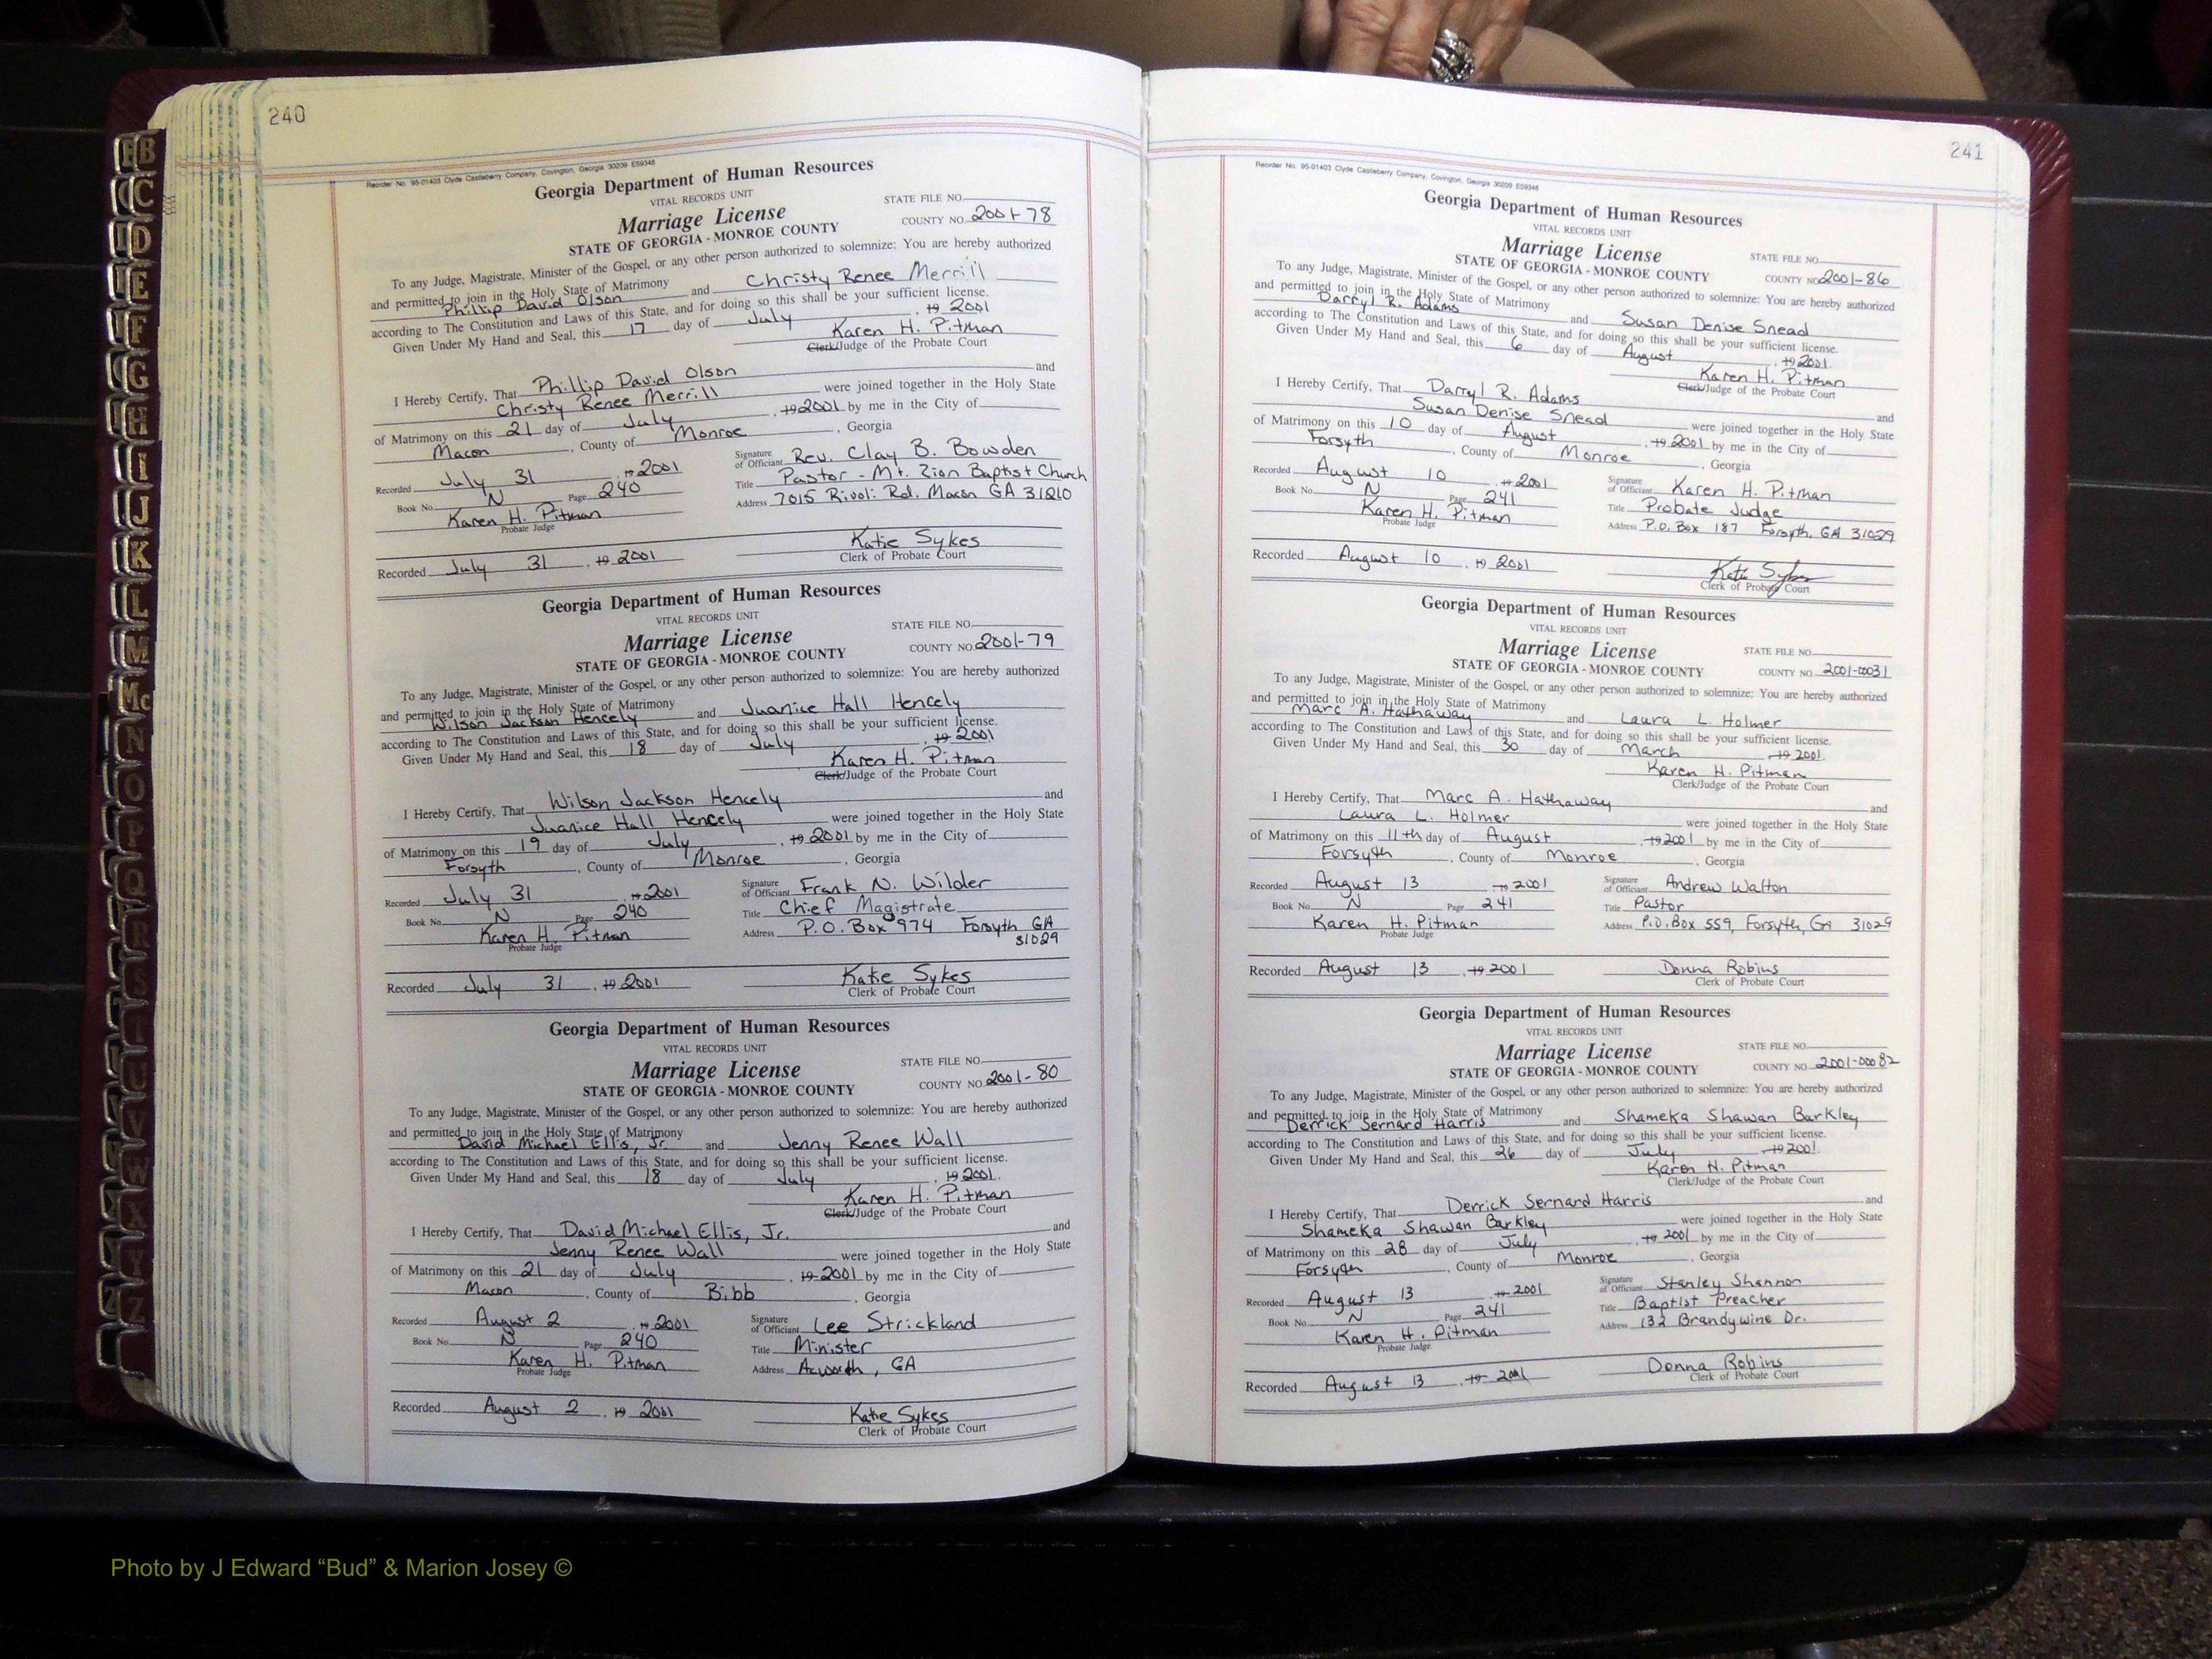 240
Reorder No. 95-01403 Clyde Castleberry Company, Covington, Georgia 30209 E59348
Georgia Department of Human Resources
VITAL RECORDS UNIT
STATE FILE NO.
Marriage License
COUNTY NO. 2001-78
STATE OF GEORGIA - MONROE COUNTY
To any Judge, Magistrate, Minister of the Gospel, or any other person authorized to solemnize: You are hereby authorized
and permitted to join in the Holy State of Matrimony
Phillip David Olson and Christy Renee Merrill
according to The Constitution and Laws of this State, and for doing so this shall be your sufficient license.
Given Under My Hand and Seal, this 17 day of July, 19 2001
Karen H. Pitman
Clerk/Judge of the Probate Court
I Hereby Certify, That Phillip David Olson and
Christy Renee Merrill were joined together in the Holy State
of Matrimony on this 21 day of July, 19 2001 by me in the City of
Macon, County of Monroe, Georgia
Recorded July 31 19 2001 Signature of Officiant Rev. Clay B. Bowden
Book No. N Page 240 Title Pastor - Mt. Zion Baptist Church
Karen H. Pitman Address 7015 Rivoli Rd. Macon GA 31210
Probate Judge
Recorded July 31, 19 2001 Katie Sykes
Clerk of Probate Court
Georgia Department of Human Resources
VITAL RECORDS UNIT
STATE FILE NO.
Marriage License
COUNTY NO. 2001-79
STATE OF GEORGIA - MONROE COUNTY
To any Judge, Magistrate, Minister of the Gospel, or any other person authorized to solemnize: You are hereby authorized
and permitted to join in the Holy State of Matrimony
Wilson Jackson Hencely and Juanice Hall Hencely
according to The Constitution and Laws of this State, and for doing so this shall be your sufficient license.
Given Under My Hand and Seal, this 18 day of July, 19 2001
Karen H. Pitman
Clerk/Judge of the Probate Court
I Hereby Certify, That Wilson Jackson Hencely and
Juanice Hall Hencely were joined together in the Holy State
of Matrimony on this 19 day of July, 19 2001 by me in the City of
Forsyth, County of Monroe, Georgia
Recorded July 31, 19 2001 Signature of Officiant Frank N. Wilder
Book No. N Page 240 Title Chief Magistrate
Karen H. Pitman Address P.O. Box 974 Forsyth GA
31029
Probate Judge
Recorded July 31, 19 2001 Katie Sykes
Clerk of Probate Court
Georgia Department of Human Resources
VITAL RECORDS UNIT
STATE FILE NO.
Marriage License
COUNTY NO. 2001-80
STATE OF GEORGIA - MONROE COUNTY
To any Judge, Magistrate, Minister of the Gospel, or any other person authorized to solemnize: You are hereby authorized
and permitted to join in the Holy State of Matrimony
David Michael Ellis, Jr. and Jenny Renee Wall
according to The Constitution and Laws of this State, and for doing so this shall be your sufficient license.
Given Under My Hand and Seal, this 18 day of July, 19 2001.
Karen H. Pitman
Clerk/Judge of the Probate Court
I Hereby Certify, That David Michael Ellis, Jr. and
Jenny Renee Wall were joined together in the Holy State
of Matrimony on this 21 day of July, 19 2001 by me in the City of
Macon, County of Bibb, Georgia
Recorded August 2, 19 2001 Signature of Officiant Lee Strickland
Book No. N Page 240 Title Minister
Karen H. Pitman Address Acworth, GA
Probate Judge
Recorded August 2, 19 2001 Katie Sykes
Clerk of Probate Court
241
Reorder No. 95-01403 Clyde Castleberry Company, Covington, Georgia 30209 E59348
Georgia Department of Human Resources
VITAL RECORDS UNIT
Marriage License
STATE FILE NO.
STATE OF GEORGIA - MONROE COUNTY
COUNTY NO. 2001-86
To any Judge, Magistrate, Minister of the Gospel, or any other person authorized to solemnize: You are hereby authorized
and permitted to join in the Holy State of Matrimony
Darryl R. Adams and Susan Denise Snead
according to The Constitution and Laws of this State, and for doing so this shall be your sufficient license.
Given Under My Hand and Seal, this 6 day of August, 19 2001
Karen H. Pitman
Clerk/Judge of the Probate Court
I Hereby Certify, That Darryl R. Adams and
Susan Denise Snead were joined together in the Holy State
of Matrimony on this 10 day of August, 19 2001 by me in the City of
Forsyth, County of Monroe, Georgia
Recorded August 10, 19 2001 Signature of Officiant Karen H. Pitman
Book No. N Page 241 Title Probate Judge
Karen H. Pitman Address P.O. Box 187 Forsyth, GA 31029
Probate Judge
Recorded August 10, 19 2001 Katie Sykes
Clerk of Probate Court
Georgia Department of Human Resources
VITAL RECORDS UNIT
Marriage License
STATE FILE NO.
STATE OF GEORGIA - MONROE COUNTY
COUNTY NO. 2001-00031
To any Judge, Magistrate, Minister of the Gospel, or any other person authorized to solemnize: You are hereby authorized
and permitted to join in the Holy State of Matrimony
Marc A. Hathaway and Laura L. Holmer
according to The Constitution and Laws of this State, and for doing so this shall be your sufficient license.
Given Under My Hand and Seal, this 30 day of March 19 2001.
Karen H. Pitman
Clerk/Judge of the Probate Court
I Hereby Certify, That Marc A. Hathaway and
Laura L. Holmer were joined together in the Holy State
of Matrimony on this 11th day of August, 19 2001 by me in the City of
Forsyth, County of Monroe, Georgia
Recorded August 13 19 2001 Signature of Officiant Andrew Walton
Book No. N Page 241 Title Pastor
Karen H. Pitman Address P.O. Box 559, Forsyth, GA 31029
Probate Judge
Recorded August 13, 19 2001 Donna Robins
Clerk of Probate Court
Georgia Department of Human Resources
VITAL RECORDS UNIT
Marriage License
STATE FILE NO.
STATE OF GEORGIA - MONROE COUNTY
COUNTY NO. 2001-00082
To any Judge, Magistrate, Minister of the Gospel, or any other person authorized to solemnize: You are hereby authorized
and permitted to join in the Holy State of Matrimony
Derrick Sernard Harris and Shameka Shawan Barkley
according to The Constitution and Laws of this State, and for doing so this shall be your sufficient license.
Given Under My Hand and Seal, this 26 day of July 19 2001.
Karen H. Pitman
Clerk/Judge of the Probate Court
I Hereby Certify, That Derrick Sernard Harris and
Shameka Shawan Barkley were joined together in the Holy State
of Matrimony on this 28 day of July, 19 2001 by me in the City of
Forsyth, County of Monroe, Georgia
Recorded August 13, 19 2001 Signature of Officiant Stanley Shannon
Book No. N Page 241 Title Baptist Preacher
Karen H. Pitman Address 132 Brandywine Dr.
Probate Judge
Recorded August 13, 19 2001 Donna Robins
Clerk of Probate Court
B
C
D
E
F
G
H
I
J
K
L
M
Mc
N
O
P
Q
R
S
T
U
V
W
X
Y
Z
Photo by J Edward “Bud” & Marion Josey ©